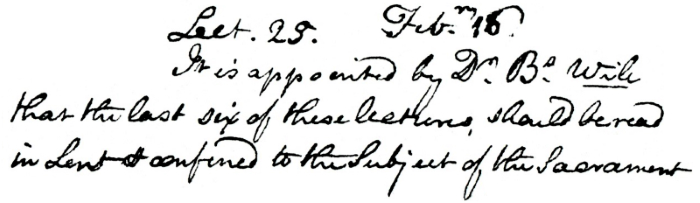 Lect. 25. Feb.ry 16.
It is appointed by Dr. Bs. Will
that the last six of these lectures, should be read
in Lent & confined to the Subject of the Sacrament